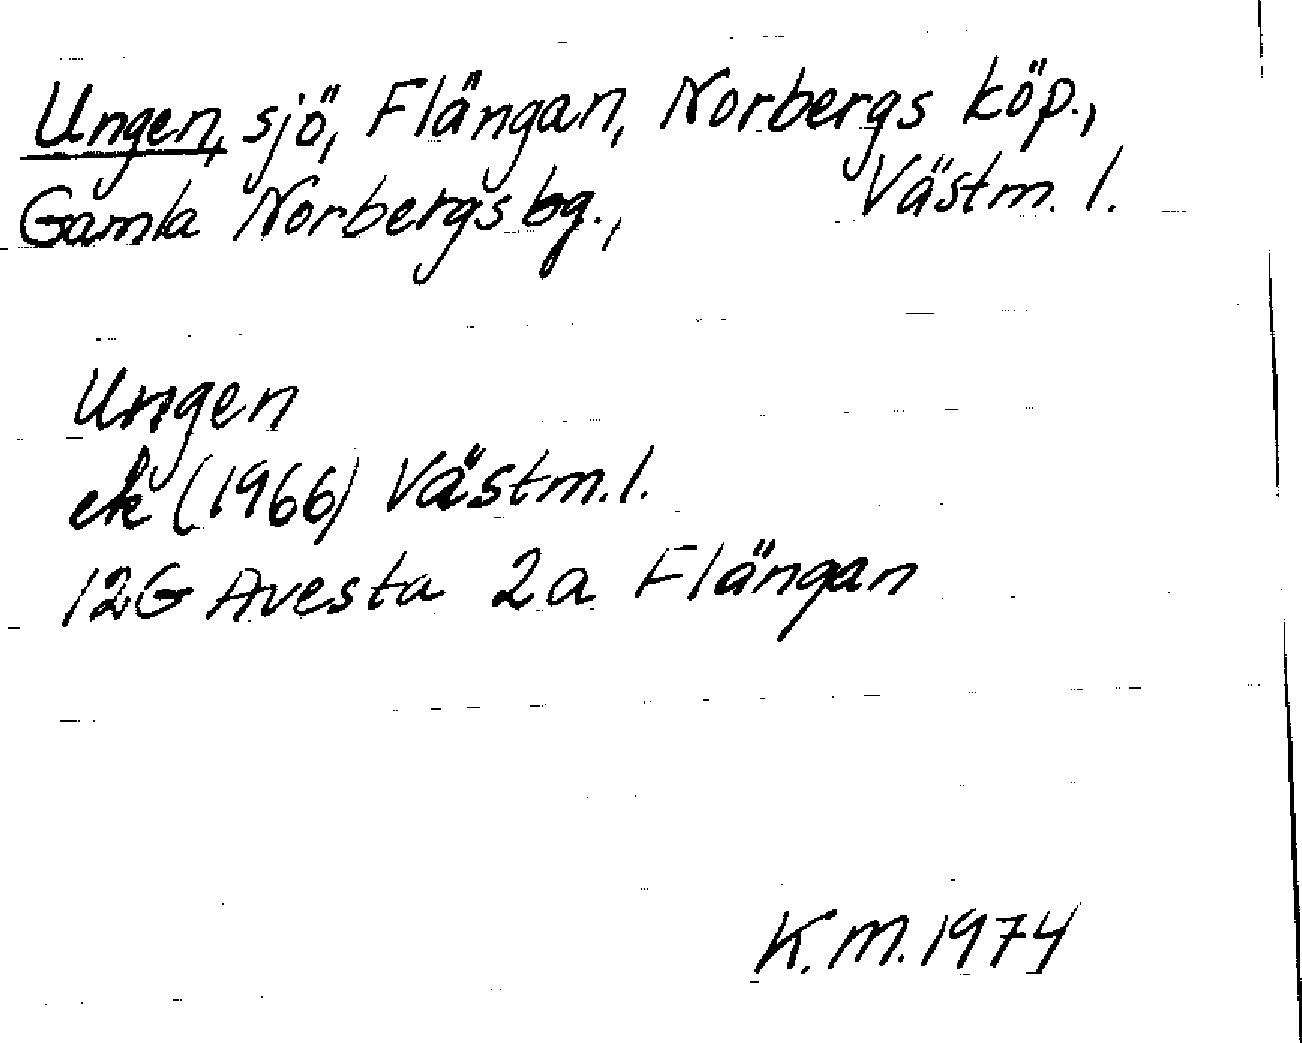 Ungen, sjö, Flängan, Norbergs köp.,
Gamla Norbergs bg., Västm. l.
Ungen
ek (1966) Västm. l.
12G Avesta 2a Flängan
K.M. 1974